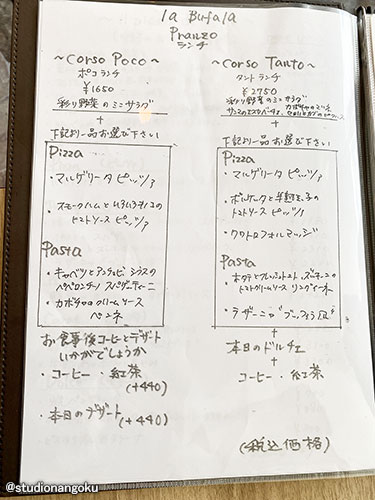 la Bufala
Pranzo
ランチ
~Corso Poco~
ポコランチ
¥1650
彩り野菜のミニサラダ
+
下記より一品お選び下さい
Pizza
・マルゲリータ ピッツァ
・スモークハムと
トマトソース ピッツァ
Pasta
・キャベツとアンチョビ シラスの
ペペロンチーノ スパゲッティーニ
・カボチャのクリームソース
ペンネ
お食事後コーヒーとデザート
いかがでしょうか
・コーヒー・紅茶
(+440)
・本日のデザート(+440)
~Corso Tanto~
タントランチ
¥2750
彩り野菜のミニサラダ
+
下記より一品お選び下さい
Pizza
・マルゲリータ ピッツァ
トマトソース ピッツァ
・クワトロフォルマッジ
Pasta
・ホタテとフレッシュトマト、ズッキーニの
トマトクリームソース リングイーネ
・ラザーニャ
+
本日のドルチェ
+
コーヒー・紅茶
(税込価格)
@studionangoku